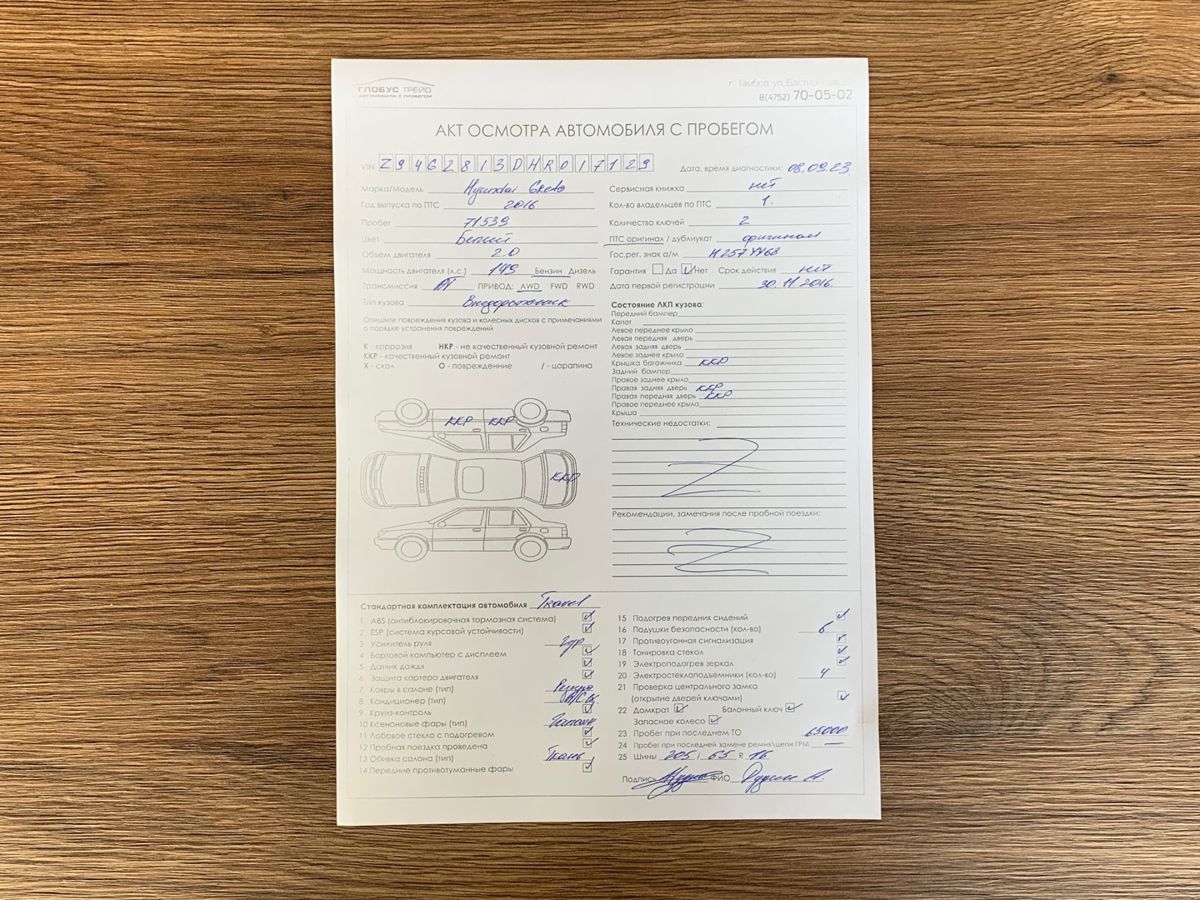 ГЛОБУС ТРЕЙД
АВТОМОБИЛИ С ПРОБЕГОМ
г. Тамбов ул.
8(4752) 70-05-02
АКТ ОСМОТРА АВТОМОБИЛЯ С ПРОБЕГОМ
VIN Z94G2813DHR017129
Дата, время диагностики: 08.09.23
Марка/Модель Hyundai Creta
Сервисная книжка нет
Год выпуска по ПТС 2016
Кол-во владельцев по ПТС 1.
Пробег 71539
Количество ключей 2
Цвет Белый
ПТС оригинал / дубликат оригинал
Объем двигателя 2.0
Гос.рег. знак а/м
Мощность двигателя (л.с.) 149 Бензин Дизель
Гарантия Да Нет Срок действия нет
Трансмиссия АТ ПРИВОД: AWD FWD RWD
Дата первой регистрации 30.11.2016.
Тип кузова Внедорожник
Опишите повреждения кузова и колесных дисков с примечаниями
о порядке устранения повреждений
К - коррозия НКР - не качественный кузовной ремонт
ККР - качественный кузовной ремонт
Х - скол О - повреждение / - царапина
ККР ККР
ККР
Состояние ЛКП кузова:
Передний бампер
Капот
Левое переднее крыло
Левая передняя дверь
Левая задняя дверь
Левое заднее крыло
Крышка багажника ККР
Задний бампер
Правое заднее крыло
Правая задняя дверь ККР
Правая передняя дверь ККР
Правое переднее крыло
Крыша
Технические недостатки:
Рекомендации, замечания после пробной поездки:
Стандартная комплектация автомобиля Travel
1 ABS (антиблокировочная тормозная система)
2 ESP (система курсовой устойчивости)
3 Усилитель руля Гур
4 Бортовой компьютер с дисплеем
5 Датчик дождя
6 Защита картера двигателя
7 Ковры в салоне (тип)
8 Кондиционер (тип)
9 Круиз-контроль
10 Ксеноновые фары (тип)
11 Лобовое стекло с подогревом
12 Пробная поездка проведена
13 Обивка салона (тип) Ткань
14 Передние противотуманные фары
15 Подогрев передних сидений
16 Подушки безопасности (кол-во) 6
17 Противоугонная сигнализация
18 Тонировка стекол
19 Электроподогрев зеркал
20 Электростеклоподъемники (кол-во) 4
21 Проверка центрального замка
(открытие дверей ключами)
22 Домкрат Балонный ключ
Запасное колесо
23 Пробег при последнем ТО 65000
24 Пробег при последней замене ремня\цепи ГРМ —
25 Шины 205 / 65 R 16
Подпись ФИО